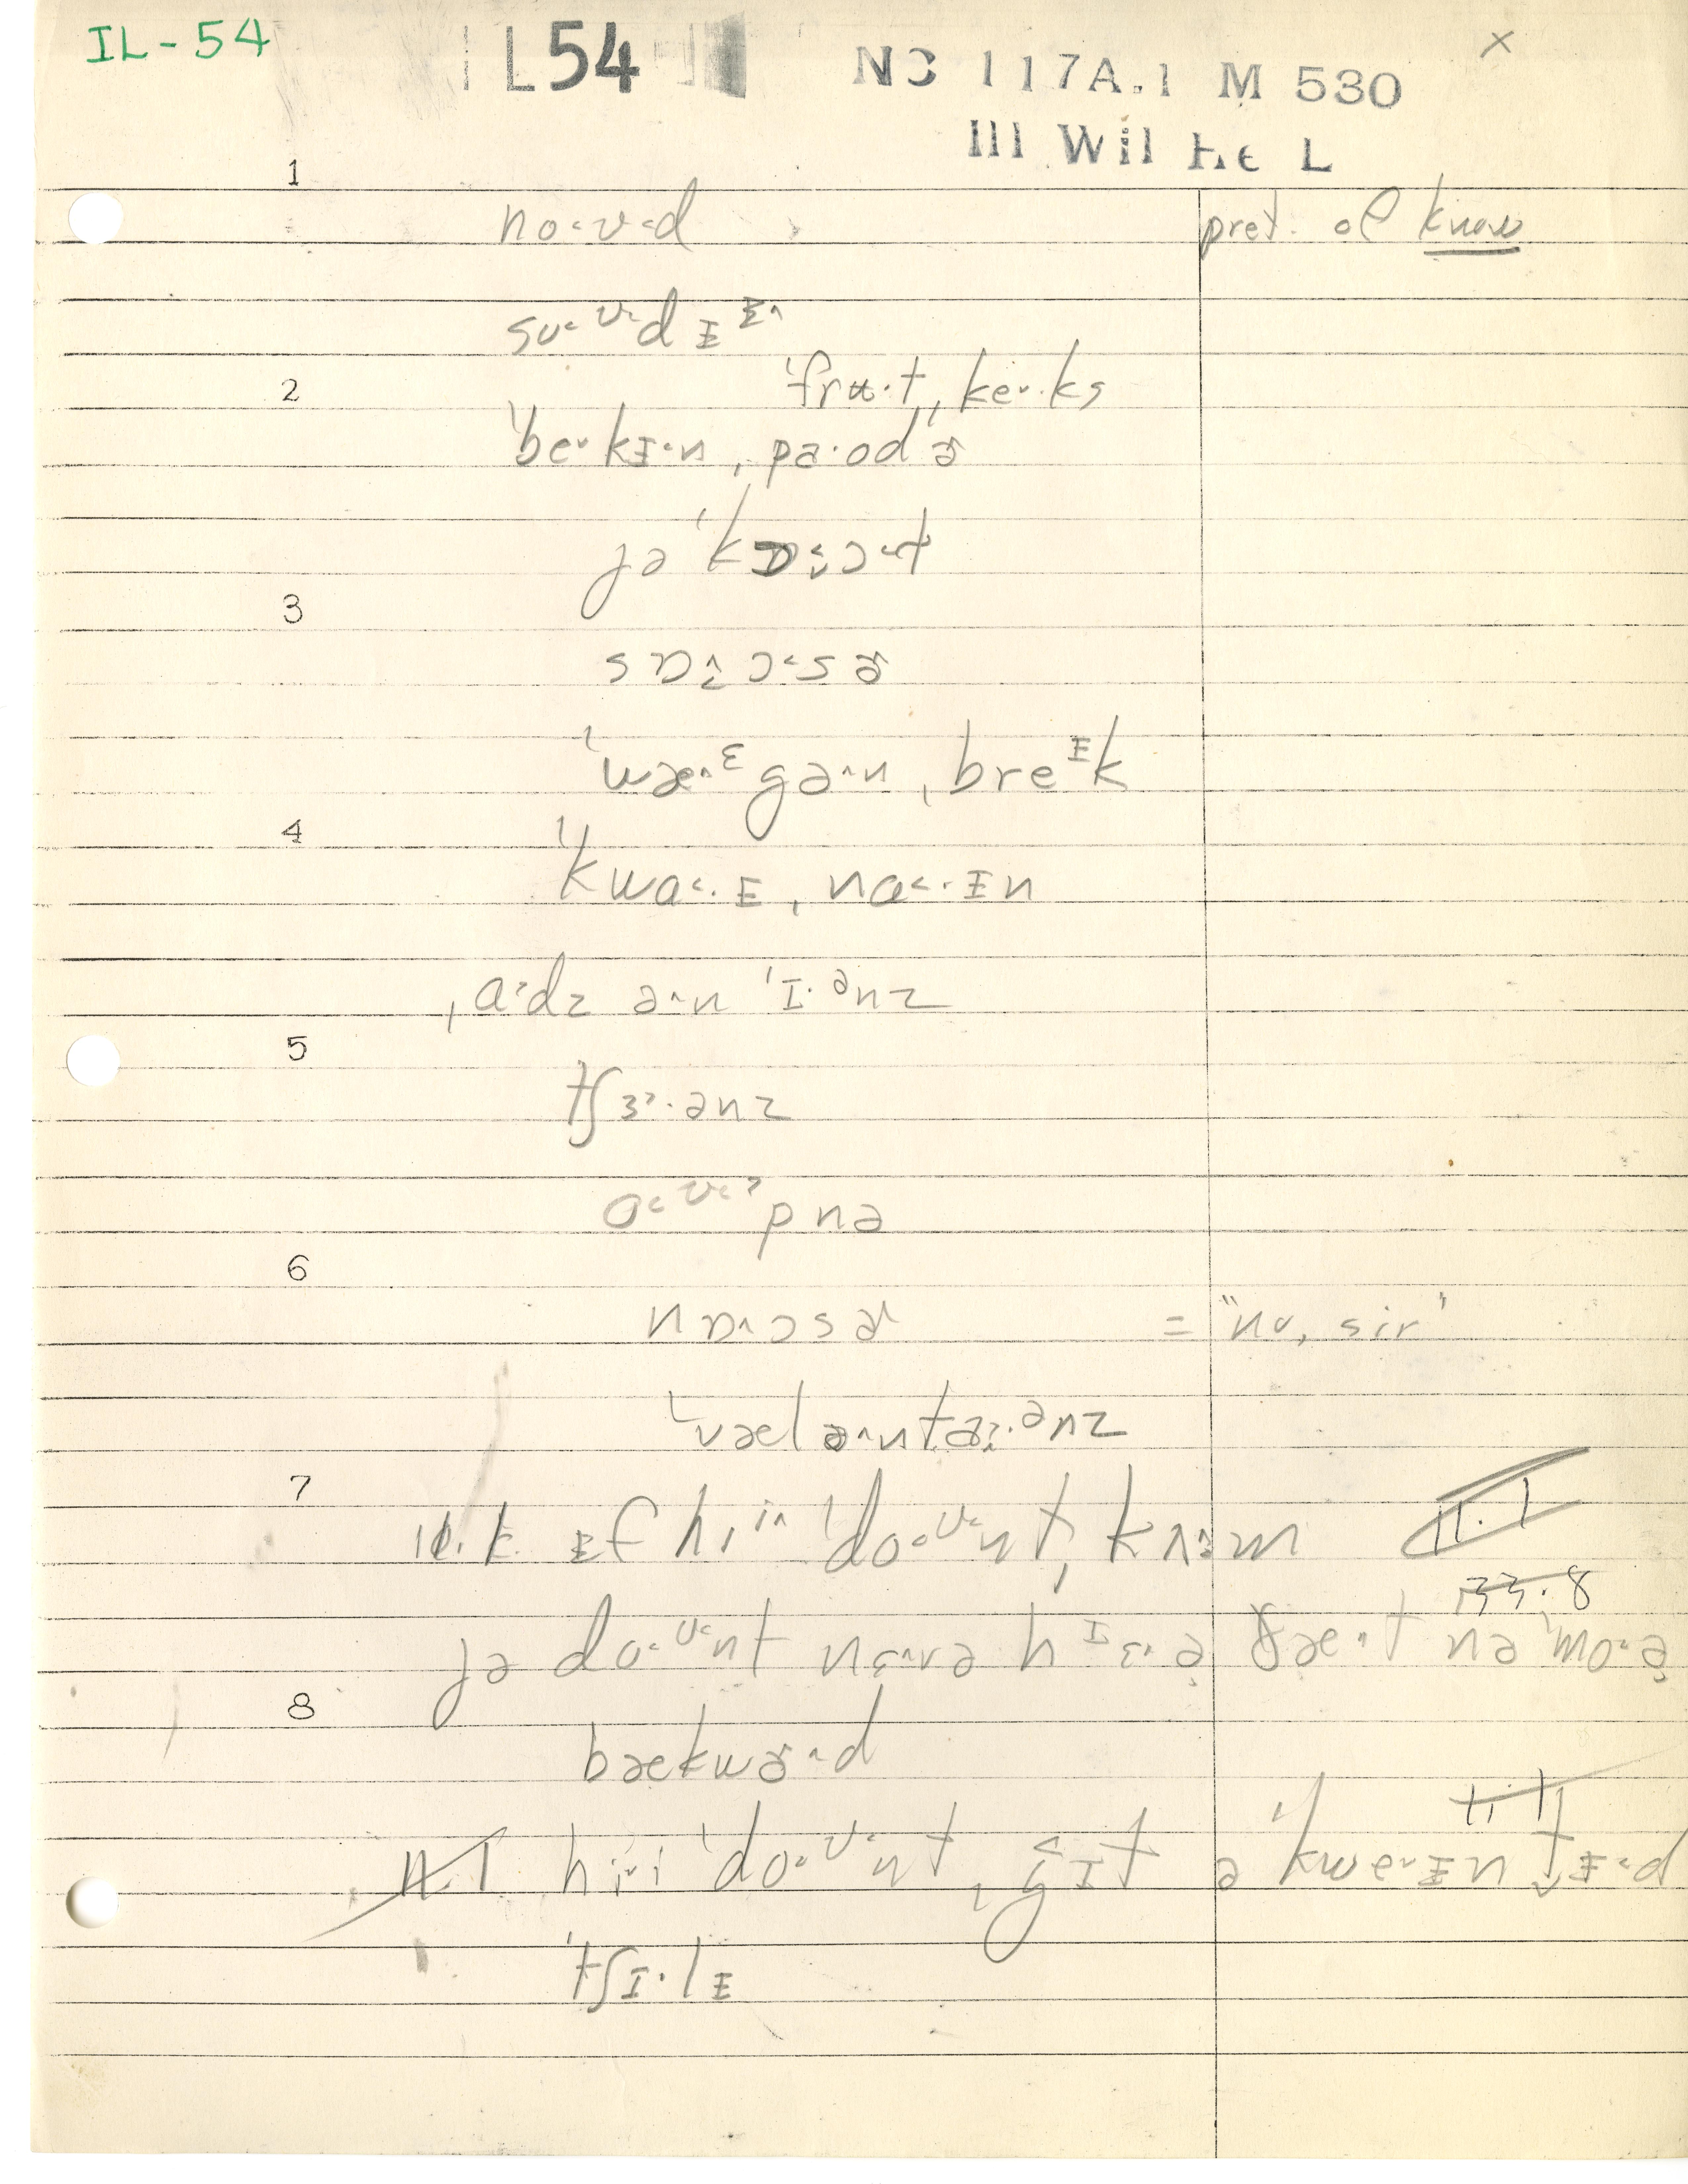 IL-54
L54
NC 117A.1 M 530
Ill Wil He L
x
1
no˂ʊ˂d
pret. of know
2
ˈfrʉ·t, ke˅·ks
ˈbe˅kɪ˂n, pa·odɚ
jə ˈkɒ·ɔ˂t
3
sɒ˄·ɔ˂sɚ
ˈwæ˄ᵋgə˄n, breᶦk
4
ˈkwa˂·ɪ, na˂·ɪn
ˌa˃dz ə˄n ˈɪ·ᵊnz
5
tʃɜ˃·ənz
o˂ʊ˂˃pnə
6
nɒ˄ɔsɚ
= "no, sir"
ˈvælə˄ntɚ·ᵊnz
7
ɪf hiⁱ˄ ˈdo˂ʊ˂nt, kʌ·m
11.1
33.8
jə do˂ʊ˂nt nɛ˄və hɪɛ˄ə ðæ˄t nə ˈmo˂ə
8
bækwɚ˄d
11.1
hi˅i ˈdo˂ʊ˂nt ˌgɪt ə ˈkwe˅ɪntɪ˂d
11.1
ˈtʃɪ·lɪ